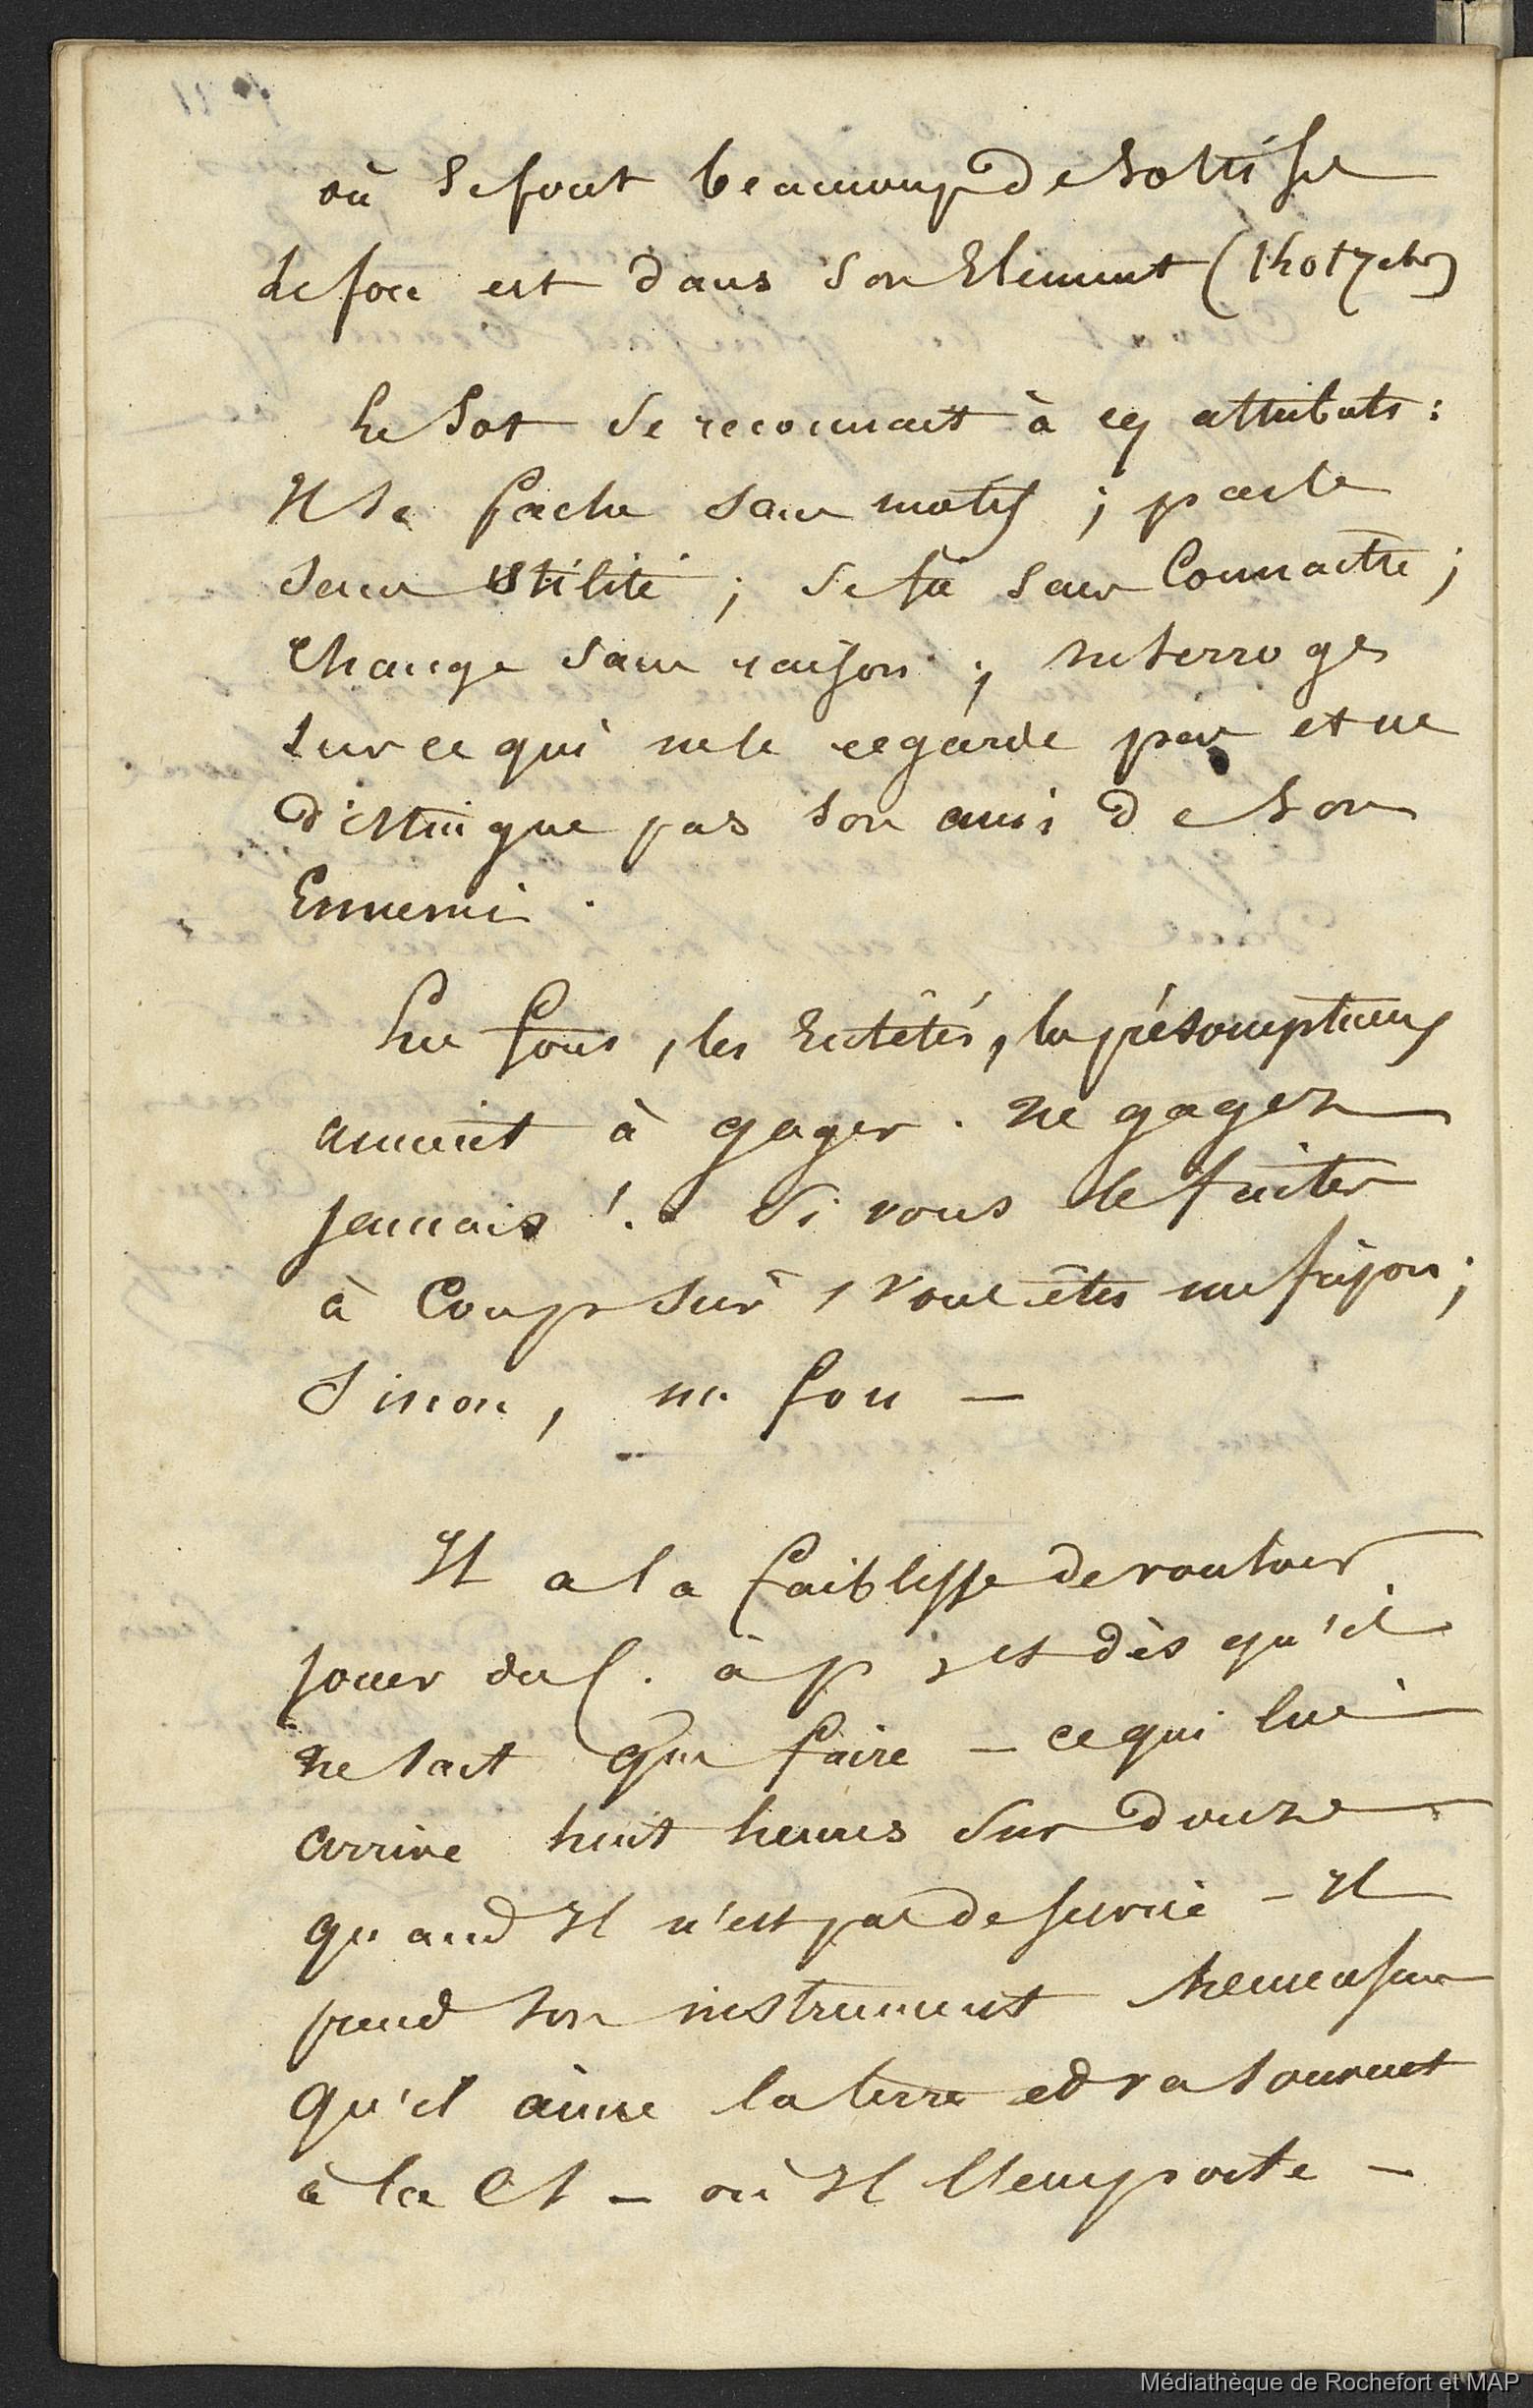 où se font beaucoup de sottises
Le fou est dans son Elément (Kotzebu)
Le Sot se reconnait à ces attributs :
Il se fache sans motif ; parle
sans Utilité ; se fie sans Connaître ;
Change sans raison ; interroge
sur ce qui ne le regarde pas et ne
distingue pas son ami de son
Ennemi .
Les fous , les Entêtés , les présomptueux
aiment à gager . Ne gagez
jamais ! . Si vous le faites
à Coup sûr , vous êtes un fripon ;
Sinon , un fou —
Il a la faiblesse de vouloir
jouer du C. à p , et dès qu'il
ne sait que faire — ce qui lui
arrive huit heures sur douze
quand Il n'est pas de service — Il
prend son instrument
qu'il aime la terre et va souvent
à la Cl — où Il l'emporte —
Médiathèque de Rochefort et MAP